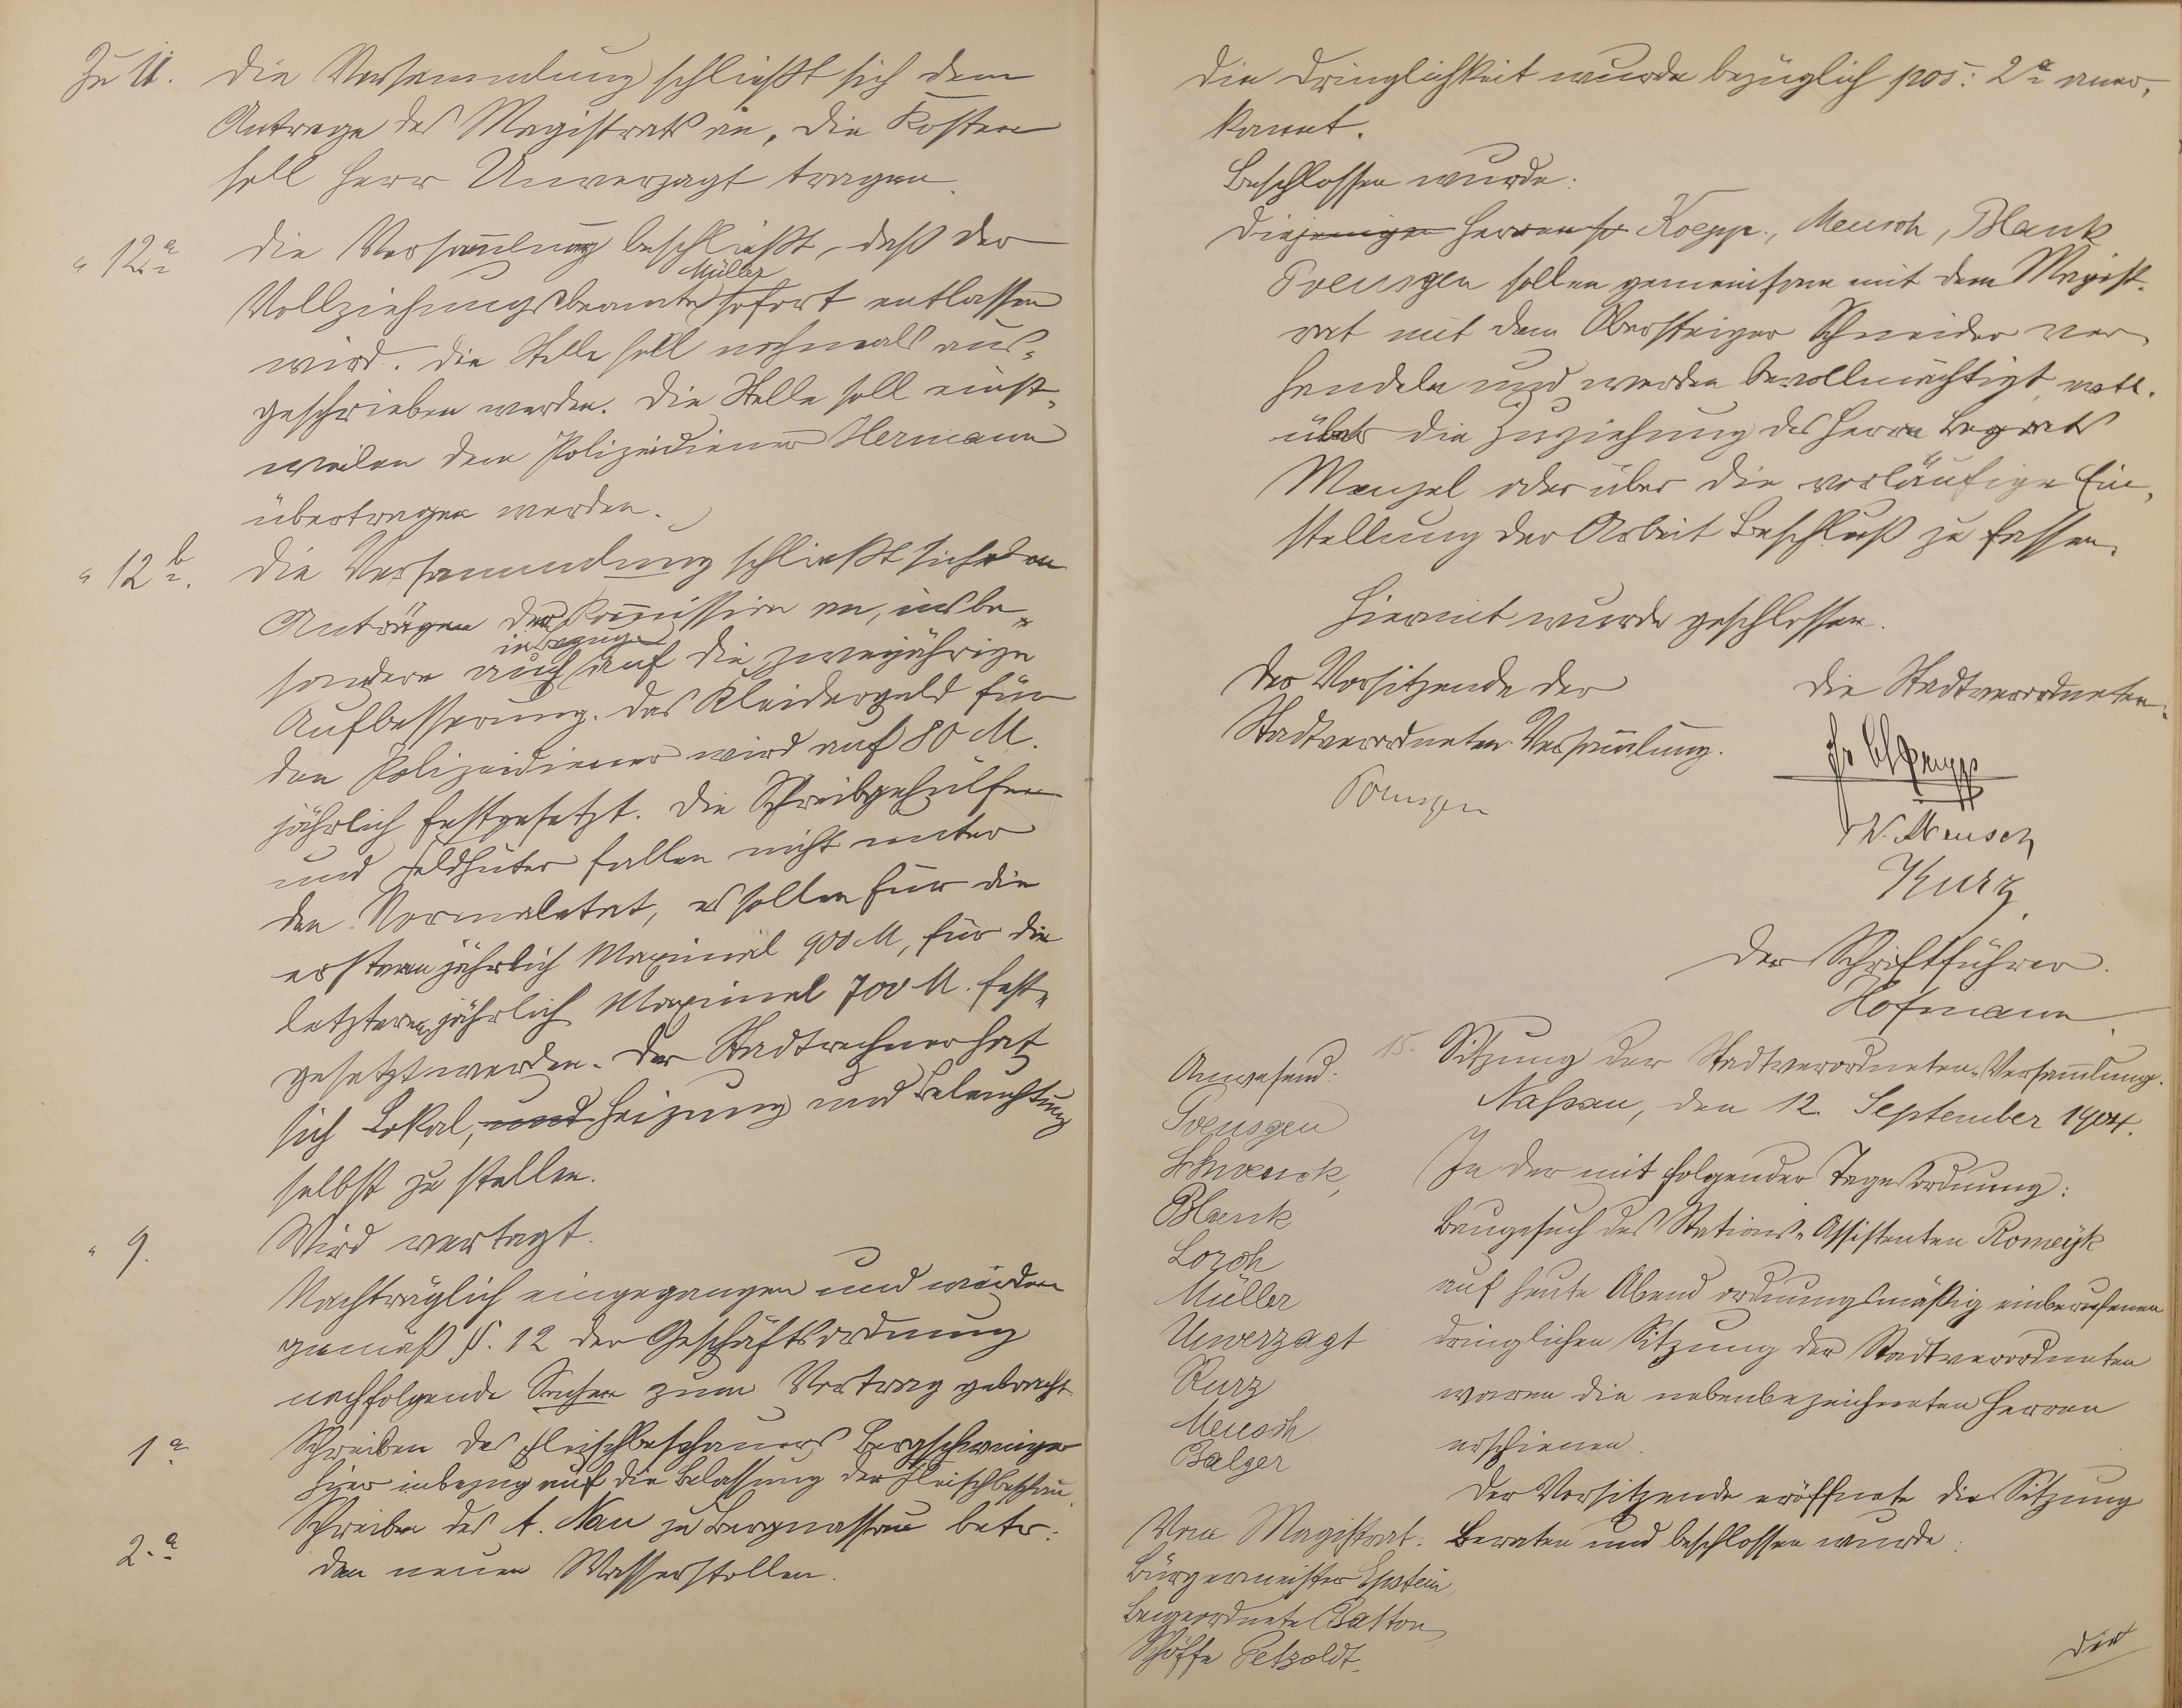 Zu 11. Die Versammlung schließt sich dem
Antrage des Magistrats an, die Kosten
soll Herr Unverzagt tragen.
" 12 a Die Versam̄lung beschließt, daß der
Müller
Vollziehungsbeamte sofort entlassen
wird. Die Stelle soll nochmals aus-
geschrieben werden. Die Stelle soll einst-
weilen dem Polizeidiener Hermann
übertragen werden.
" 12 b. Die Versammlung schließt sich den
Anträgen der Kom̄ission an, insbe-
in Bezuge
sondere auch auf die zweijährige
Aufbesserung. Das Kleidergeld für
den Polizeidiener wird auf 80 M.
jährlich festgesetzt. Die Schreibgehülfen
und Feldhüter fallen nicht unter
den Normaletat, es sollen für die
ersteren jährlich Maximal 900 M, für die
letzteren jährlich Maximal 700 M. fest-
gesetzt werden. Der Stadtrechner hat
sich Lokal, und Heizung und Beleuchtung
selbst zu stellen.
" 9. Wird vertagt.
Nachträglich eingegangen und werden
gemäß §. 12 der Geschäftsordnung
nachfolgende Sachen zum Vortrag gebracht.
1 a Schreiben des Fleischbeschauers Bergschweiger
hier inbezug auf die Belassung der Fleischbeschau.
2. a Schreiben des A. Nau zu Bergnassau betr:
den neuen Wasserstollen.
Die Dringlichkeit wurde bezüglich pos: 2 a aner-
kannt.
Beschlossen wurde:
Diejenigen Herren so Koepp., Meusch, Blank
Poensgen sollen gemeinsam mit dem Magist-
rat mit dem Obersteiger Schneider ver-
handeln und werden bevollmächtigt, evtl.
über die Zuziehung des Herrn Bergrats
Menzel oder über die vorläufige Ein-
stellung der Arbeit Beschluß zu fassen.
Hiermit wurde geschlossen.
Der Vorsitzende der
Stadtverordneten-Versam̄lung.
Poensgen
Die Stadtverordneten.
W. Meusch
Kurz
Der Schriftführer.
Hofmann
Anwesend:
Poensgen
Schwenck,
Blank
Lorch
Müller
Unverzagt
Kurz
Meusch
Balzer
Vom Magistrat:
Bürgermeister Epstein,
Beigeordnete Balton
Schöffe Petzoldt.
15. Sitzung der Stadtverordneten-Versam̄lung.
Nassau, den 12. September 1904.
In der mit folgender Tagesordnung:
Baugesuch des Stations-Assistenten Romeyk
auf heute Abend ordnungsmäßig einberufenen
dringlichen Sitzung der Stadtverordneten
waren die nebenbezeichneten Herren
erschienen.
Der Vorsitzende eröffnete die Sitzung
Beraten und beschlossen wurde:
Der